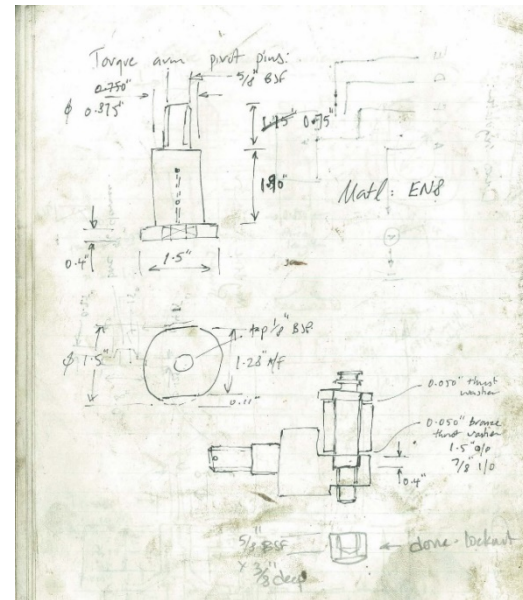 Torque arm pivot pins.
5/8" BSF
0.750"
φ 0.875"
1.75" 0.75"
1.90"
Matl: EN8
0.4"
1.5"
tap 1/8" BSF
φ 1.5"
1.28" A/F
0.11"
0.050" thrust
washer
0.050" bronze
thrust washer
1.5" o/d
7/8" i/d
0.4"
5/8" BSF
x 3/8" deep
dome-locknut